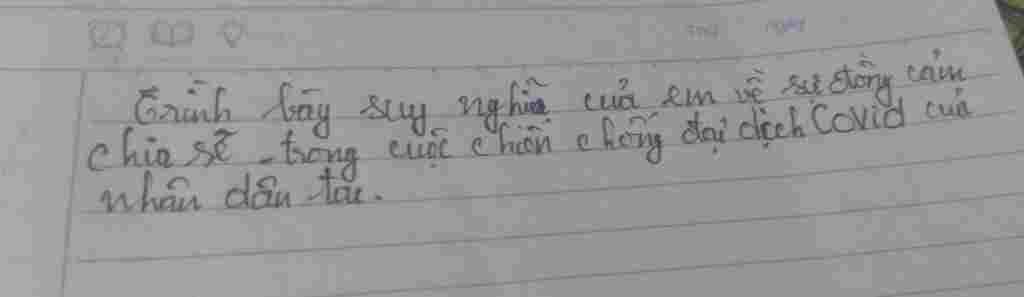 Trình bày suy nghĩ của em về sự đồng cảm
chia sẽ trong cuộc chiến chống đại dịch Covid của
nhân dân ta.